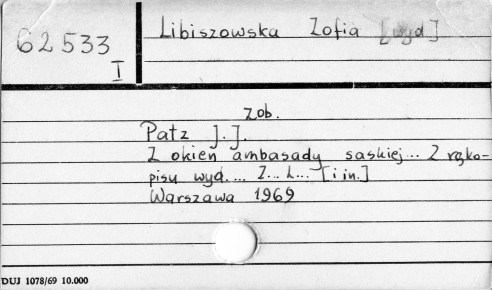 62533
I
Libiszowska Zofia [wyd]
Zob.
Patz J. J.
Z okien ambasady saskiej... Z ręko-
pisu wyd.... Z... L... [i in.]
Warszawa 1969
DUJ 1078/69 10.000